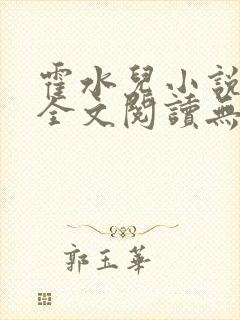 霍水兒小說
全文閱讀無
郭玉華